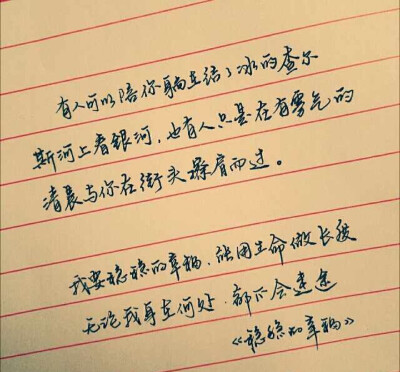 有人可以陪你躺在结了冰的查尔
斯河上看银河，也有人只是在有雾气的
清晨与你在街头擦肩而过。
我要稳稳的幸福，能用生命做长度
无论我身在何处，都不会迷途
《稳稳的幸福》